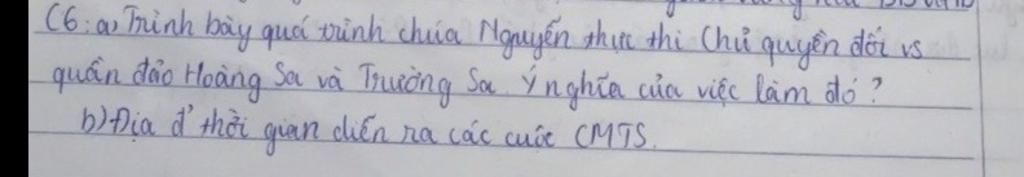 C6: a) Trình bày quá trình chúa Nguyễn thực thi Chủ quyền đối vs
quần đảo Hoàng Sa và Trường Sa. Ý nghĩa của việc làm đó?
b) Địa đ' thời gian diễn ra các cuộc CMTS.